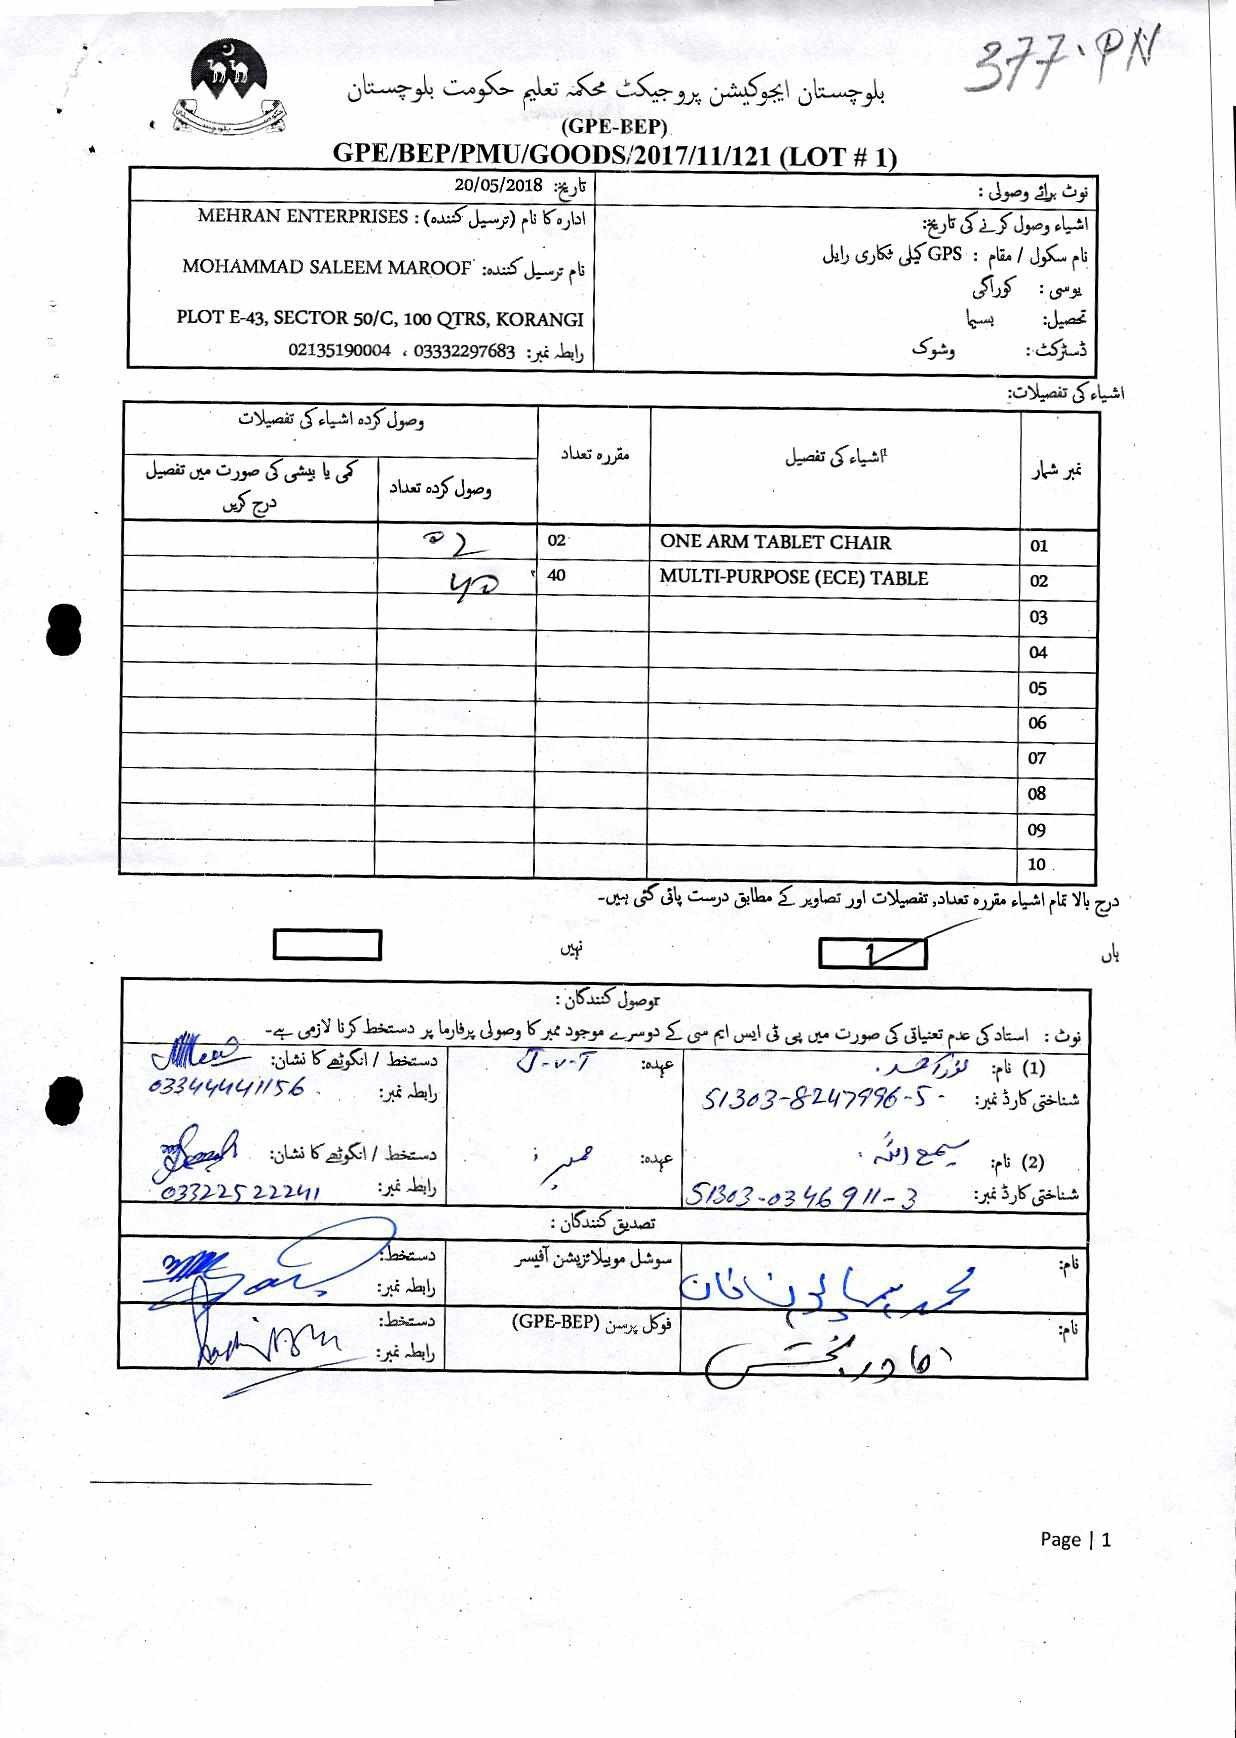 377-PN
بلوچستان ایجوکیشن پروجیکٹ محکمہ تعلیم حکومت بلوچستان
(GPE-BEP)
GPE/BEP/PMU/GOODS/2017/11/121 (LOT # 1)
نوٹ برائے وصولی :
تاریخ: 20/05/2018
اشیاء وصول کرنے کی تاریخ:
نام سکول / مقام : GPS کیلی شکاری رایل
یوسی : کوراکی
تحصیل: بسیما
ڈسٹرکٹ: وشوک
ادارہ کا نام (ترسیل کنندہ) : MEHRAN ENTERPRISES
نام ترسیل کنندہ: MOHAMMAD SALEEM MAROOF
PLOT E-43, SECTOR 50/C, 100 QTRS, KORANGI
رابطہ نمبر: 03332297683 ، 02135190004
اشیاء کی تفصیلات:
نمبر شمار اشیاء کی تفصیل مقررہ تعداد وصول کردہ اشیاء کی تفصیلات
وصول کردہ تعداد کمی یا بیشی کی صورت میں تفصیل درج کریں
01 ONE ARM TABLET CHAIR 02 02
02 MULTI-PURPOSE (ECE) TABLE 40 40
03
04
05
06
07
08
09
10
درج بالا تمام اشیاء مقررہ تعداد, تفصیلات اور تصاویر کے مطابق درست پائی گئی ہیں۔
ہاں نہیں
وصول کنندگان :
نوٹ : استاد کی عدم تعنیاتی کی صورت میں پی ٹی ایس ایم سی کے دوسرے موجود ممبر کا وصولی پرفارما پر دستخط کرنا لازمی ہے۔
(1) نام: نور احمد عہدہ: J-V-T دستخط / انگوٹھے کا نشان:
شناختی کارڈ نمبر: 51303-8247996-5 رابطہ نمبر: 03344441156
(2) نام: سمیع اللہ عہدہ: ممبر دستخط / انگوٹھے کا نشان:
شناختی کارڈ نمبر: 51303-0346911-3 رابطہ نمبر: 03322522241
تصدیق کنندگان :
نام: محمد ہمایون خان سوشل موبیلائزیشن آفیسر دستخط:
رابطہ نمبر:
نام: قادر بخش فوکل پرسن (GPE-BEP) دستخط:
رابطہ نمبر:
Page | 1